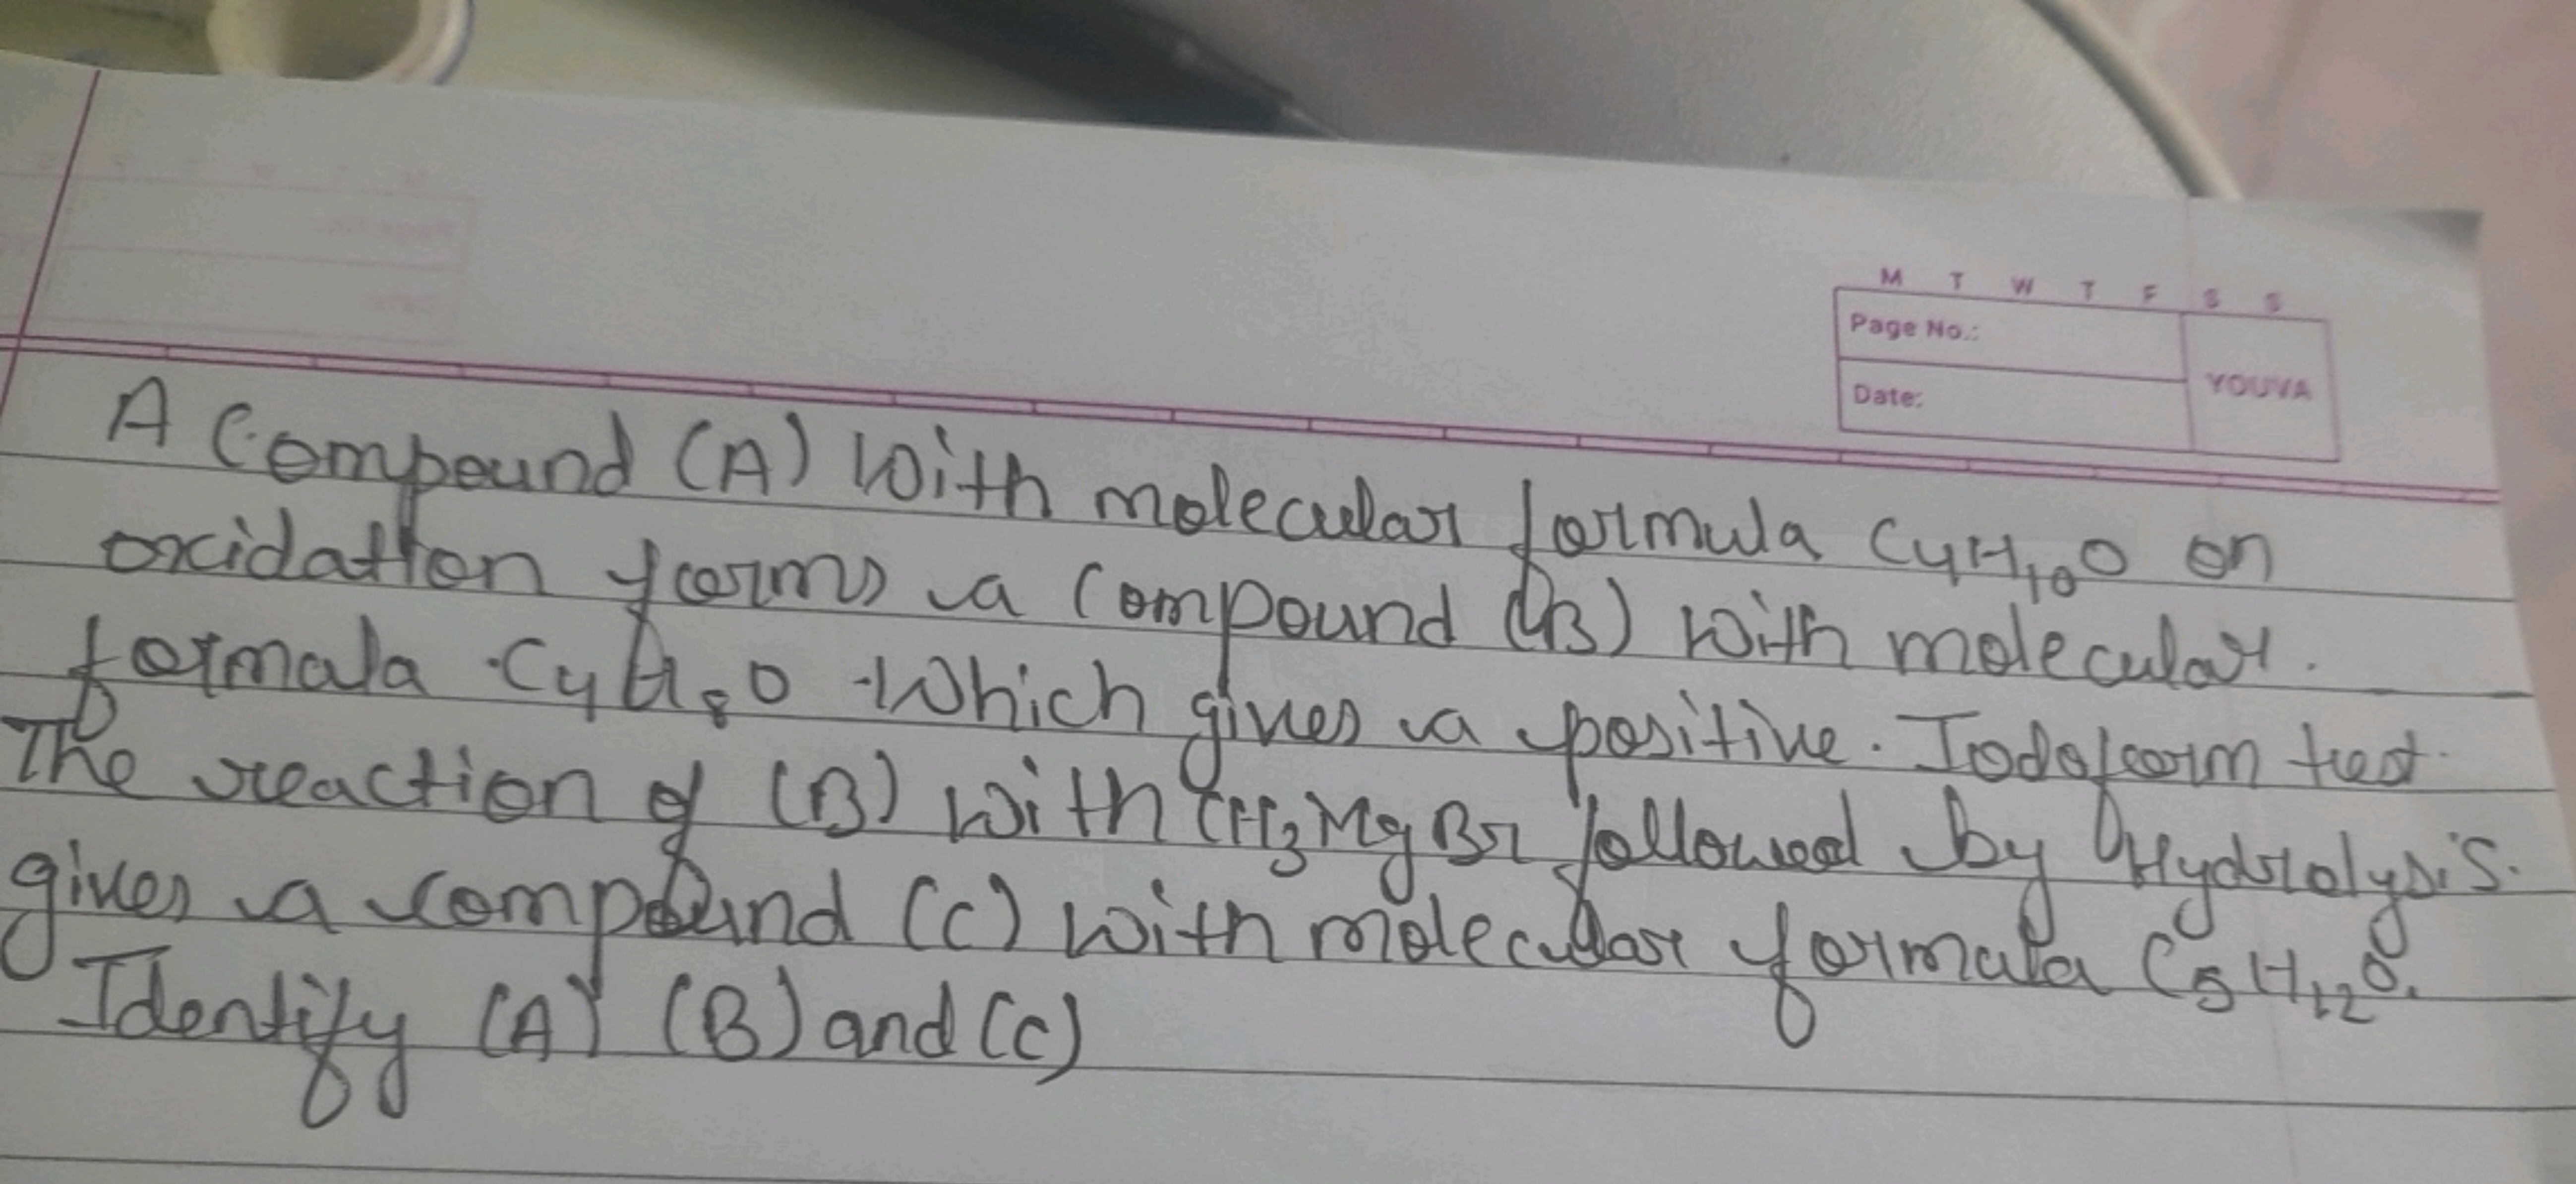 M T W T F S S
Page No.:
YOUVA
Date:
A Compound (A) With molecular formula C4H10O on
oxidation forms a Compound (B) with molecular.
formala C4H8O Which gives a positive. Iodoform test.
The reaction of (B) with CH3MgBr followed by Hydrolysis.
gives a compound (C) with molecular formala C5H12O.
Identify (A) (B) and (C)